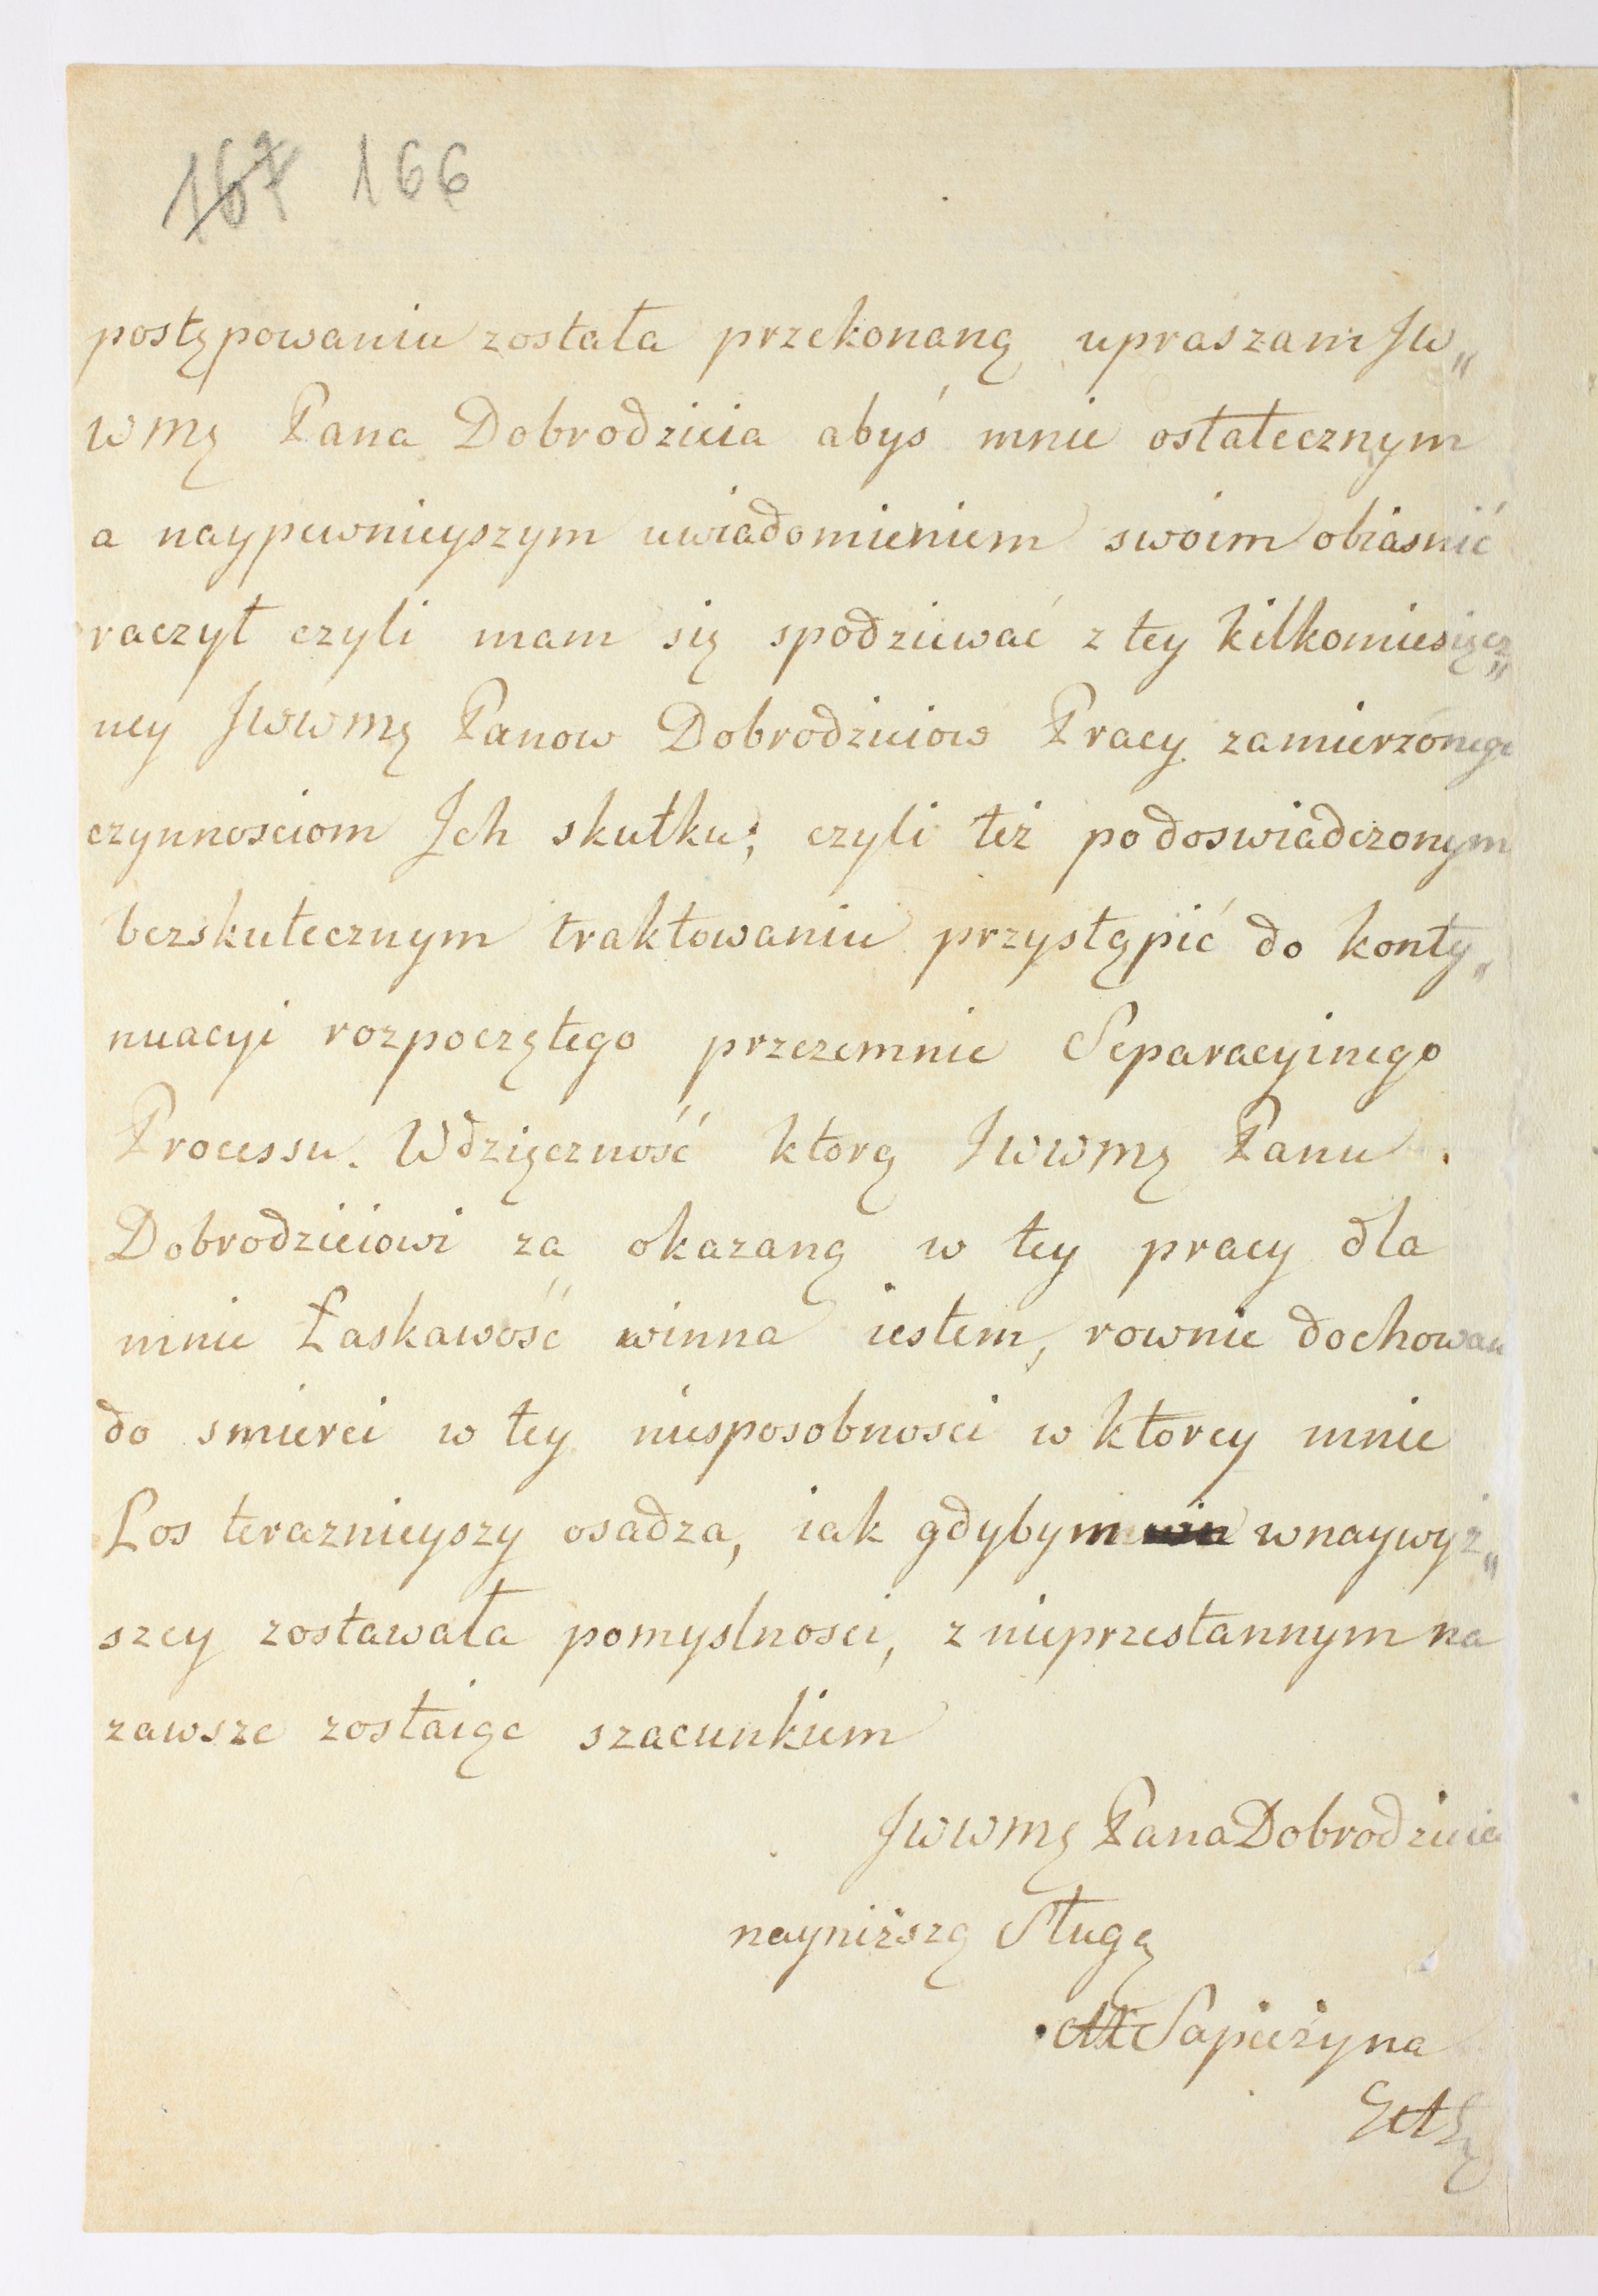 167 166
postępowaniu została przekonaną upraszam JW„
WMę Pana Dobrodzieia abyś mnie ostatecznym
a naypewnieyszym uwiadomieniem swoim obiasnić
raczył czyli mam się spodziewać z tey kilkomiesięcz„
ney JWWMę Panow Dobrodzieiow Pracy zamierzonego
czynnosciom Ich skutku; czyli też po doswiadczonym
bezskutecznym traktowaniu przystąpić do konty„
nuacyi rozpoczętego przezemnie Separacyinego
Processu. Wdzięczność ktorą JWWMę Panu
Dobrodzieiowi za okazaną w tey pracy dla
mnie Łaskawość winna iestem, rownie dochowam
do smierci w tey niesposobnosci w ktorey mnie
Los teraznieyszy osadza, iak gdybym wnaywyż„
szey zostawała pomyslnosci, z nieprzestannym na
zawsze zostaiąc szacunkiem
JWWMę Pana Dobrodzieia
nayniższą Sługą
M Sapieżyna